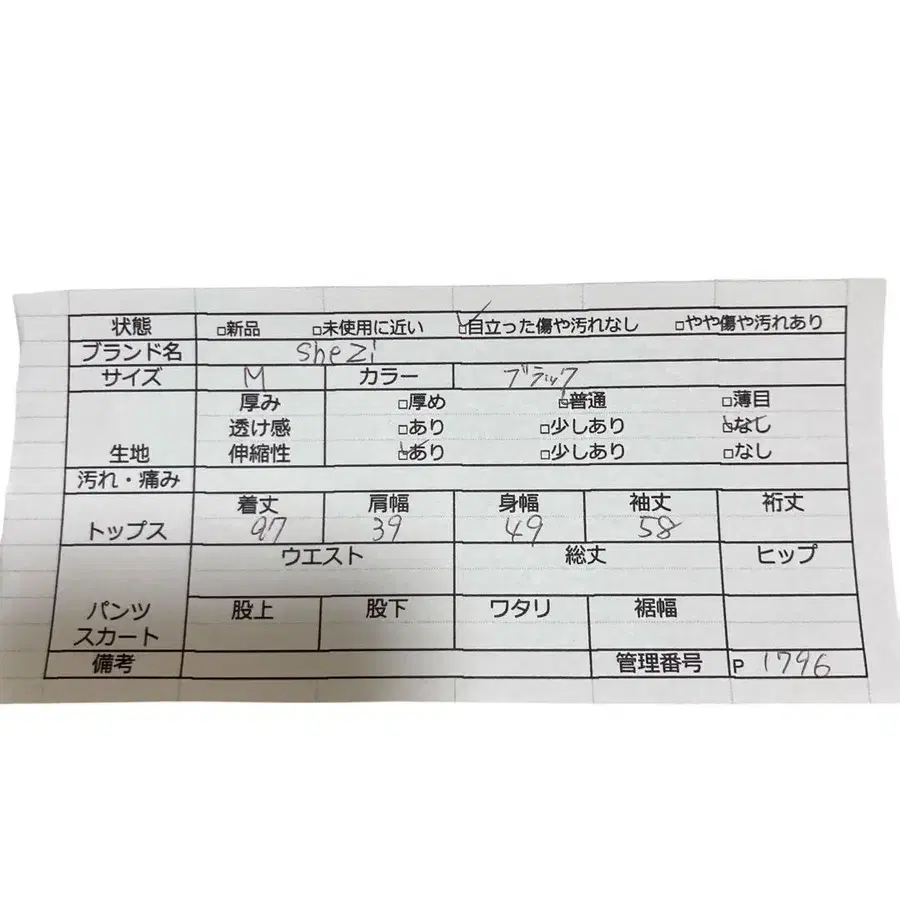 状態 □新品 □未使用に近い ☑目立った傷や汚れなし □やや傷や汚れあり
ブランド名 Shezi
サイズ M カラー ブラック
厚み □厚め ☑普通 □薄目
透け感 □あり □少しあり ☑なし
生地 伸縮性 ☑あり □少しあり □なし
汚れ・痛み
着丈 肩幅 身幅 袖丈 裄丈
トップス 97 39 49 58
ウエスト 総丈 ヒップ
パンツ 股上 股下 ワタリ 裾幅
スカート
備考 管理番号 P 1796